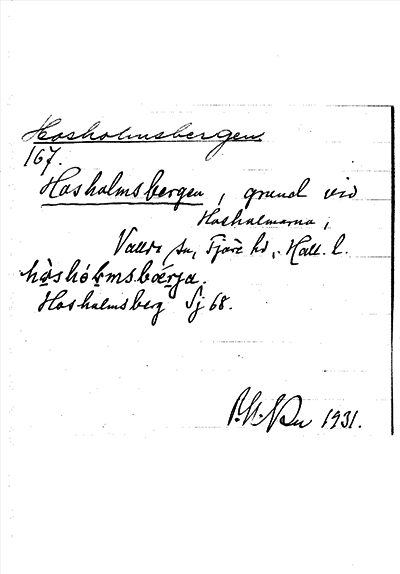 Hosholmsbergen.
167.
Hosholmsbergen, grund vid
Hosholmarna,
Vallda sn, Fjäre hd, Hall. l.
Hosholmsberg Sj 68.
1931.